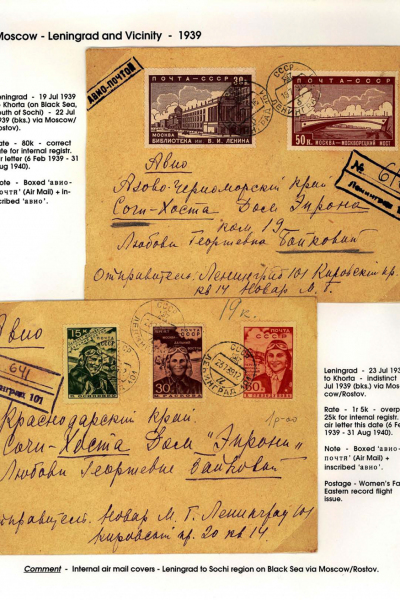 Moscow - Leningrad and Vicinity - 1939
Leningrad - 19 Jul 1939
to Khorta (on Black Sea,
south of Sochi) - 22 Jul
1939 (bks.) via Moscow/
Rostov).
Rate - 80k - correct
rate for internal registr.
air letter (6 Feb 1939 - 31
Aug 1940).
Note - Boxed 'авио-
почти' (Air Mail) + in-
scribed 'авио'.
АВИО-ПОЧТОЙ
ПОЧТА-СССР 30к.
МОСКВА
БИБЛИОТЕКА им. В. И. ЛЕНИНА
СССР
ПОЧТА-СССР
50к. МОСКВА-МОСКВОРЕЦКИЙ МОСТ
№
Ленинград
Авио
Азово-Черноморский край
Сочи-Хоста Дом Эпрона
ком 19
Любови Георгиевне Байковой
Отправитель. Ленинград 101 Кировский пр.
кв 14 Новар М. Г.
19к.
Авио
641
Ленинград 101
15к
30
ПОЧТА
СССР
80к
СССР
ЛЕНИНГРАД
Краснодарский край
Сочи-Хоста Дом "Эпрони"
Любови Георгиевне Байковой
Отправител. Новар М. Г. Ленинград 101
Кировский пр. 20 кв 14
Leningrad - 23 Jul 1939
to Khorta - indistinct
Jul 1939 (bks.) via Mos-
cow/Rostov.
Rate - 1r 5k - overp.
25k for internal registr.
air letter this date (6 Feb
1939 - 31 Aug 1940).
Note - Boxed 'авио-
почти' (Air Mail) +
inscribed 'авио'.
Postage - Women's Far
Eastern record flight
issue.
Comment - Internal air mail covers - Leningrad to Sochi region on Black Sea via Moscow/Rostov.